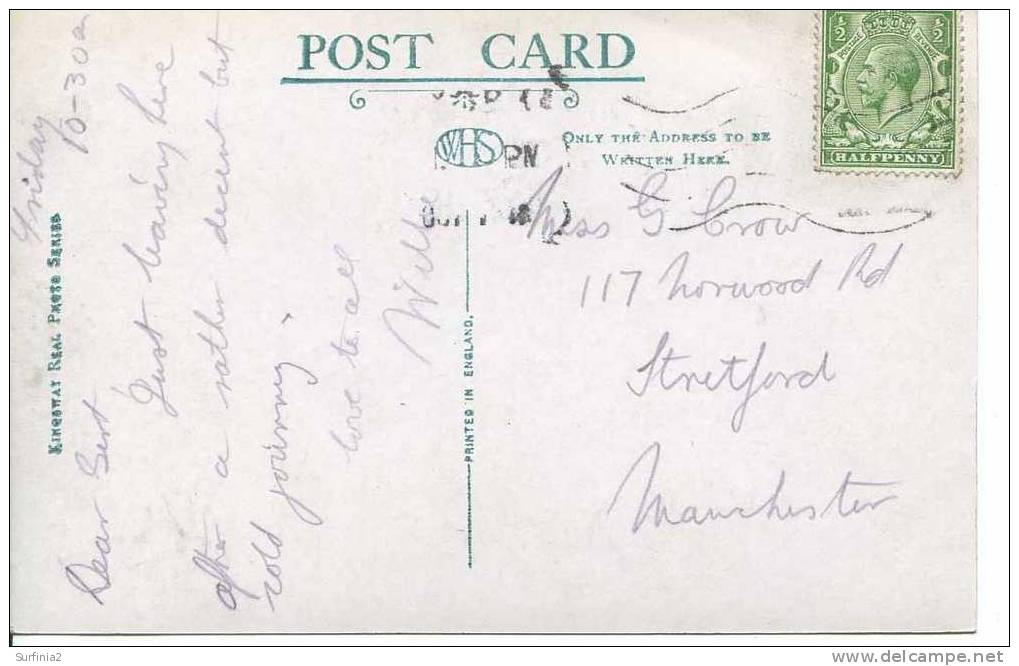 POST CARD
WHS
ONLY THE ADDRESS TO BE
WRITTEN HERE.
1/2 1/2
POSTAGE REVENUE
HALFPENNY
KINGSWAY REAL PHOTO SERIES
PRINTED IN ENGLAND.
Friday
10-30a
Dear Gert
Just leaving here
after a rather decent but
cold journey.
love to all
Miss G Crow
117 Norwood Rd
Stretford
Manchester
Surfinia2
www.delcampe.net